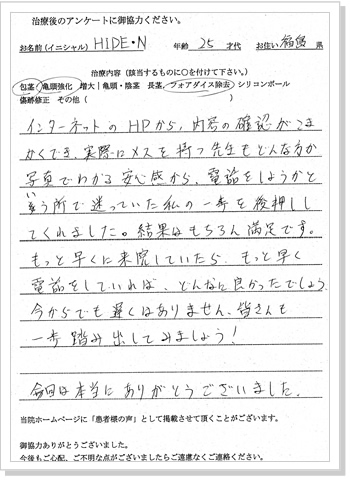 治療後のアンケートに御協力ください。
お名前(イニシャル) HIDE・N 年齢 25 才代 お住い 福島 県
治療内容(該当するものに○を付けて下さい。)
包茎 亀頭強化 増大|亀頭・陰茎 長茎 フォアダイス除去 シリコンボール
傷跡修正 その他( )
インターネットのHPから、内容の確認がこま
かくでき、実際にメスを持つ先生もどんな方か
写真でわかる安心感から、電話をしようかと
いう所で迷っていた私の一歩を後押しし
てくれました。結果はもちろん満足です。
もっと早くに来院していたら、もっと早く
電話をしていれば、どんなに良かったでしょう
今からでも遅くはありません、皆さんも
一歩踏み出してみましょう!
今回は本当にありがとうございました。
当院ホームページに「患者様の声」として掲載させて頂くことがございます。
御協力ありがとうございました。
今後もご心配、ご不明な点がございましたらご遠慮なくご連絡ください。